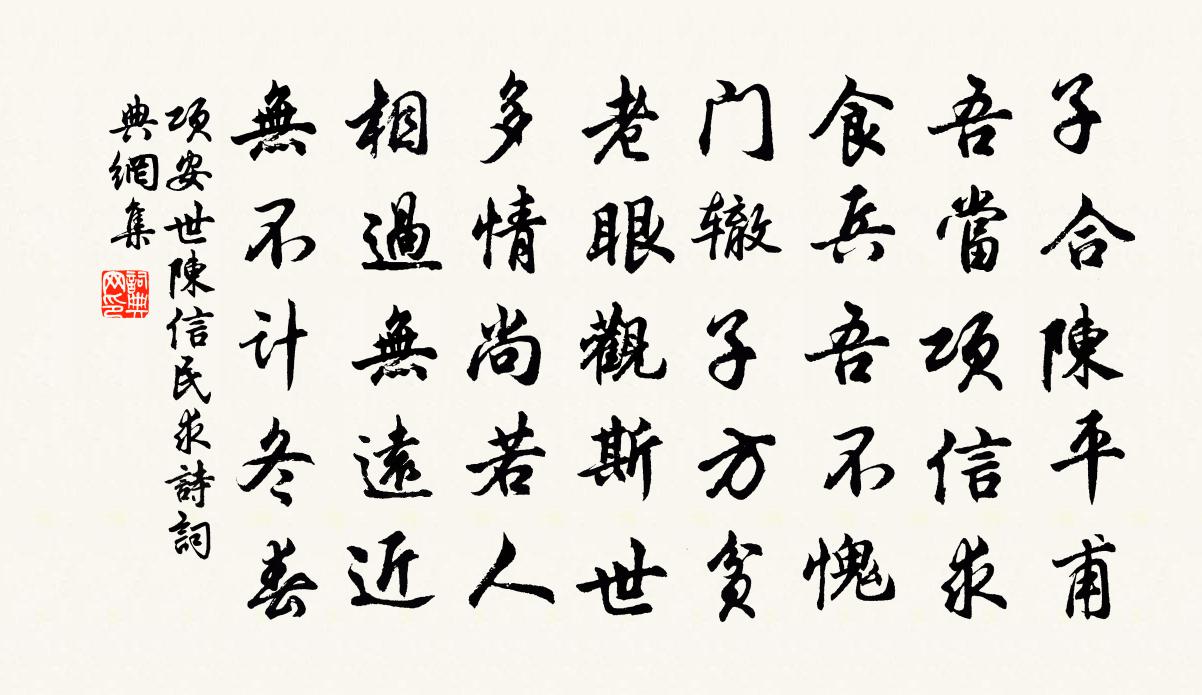 子合陳平甫
吾當項信求
食兵吾不愧
门辙子方貧
老眼觀斯世
多情尚若人
相過無遠近
無不计冬春
项安世陳信民求詩詞
典網集
詞典
网印